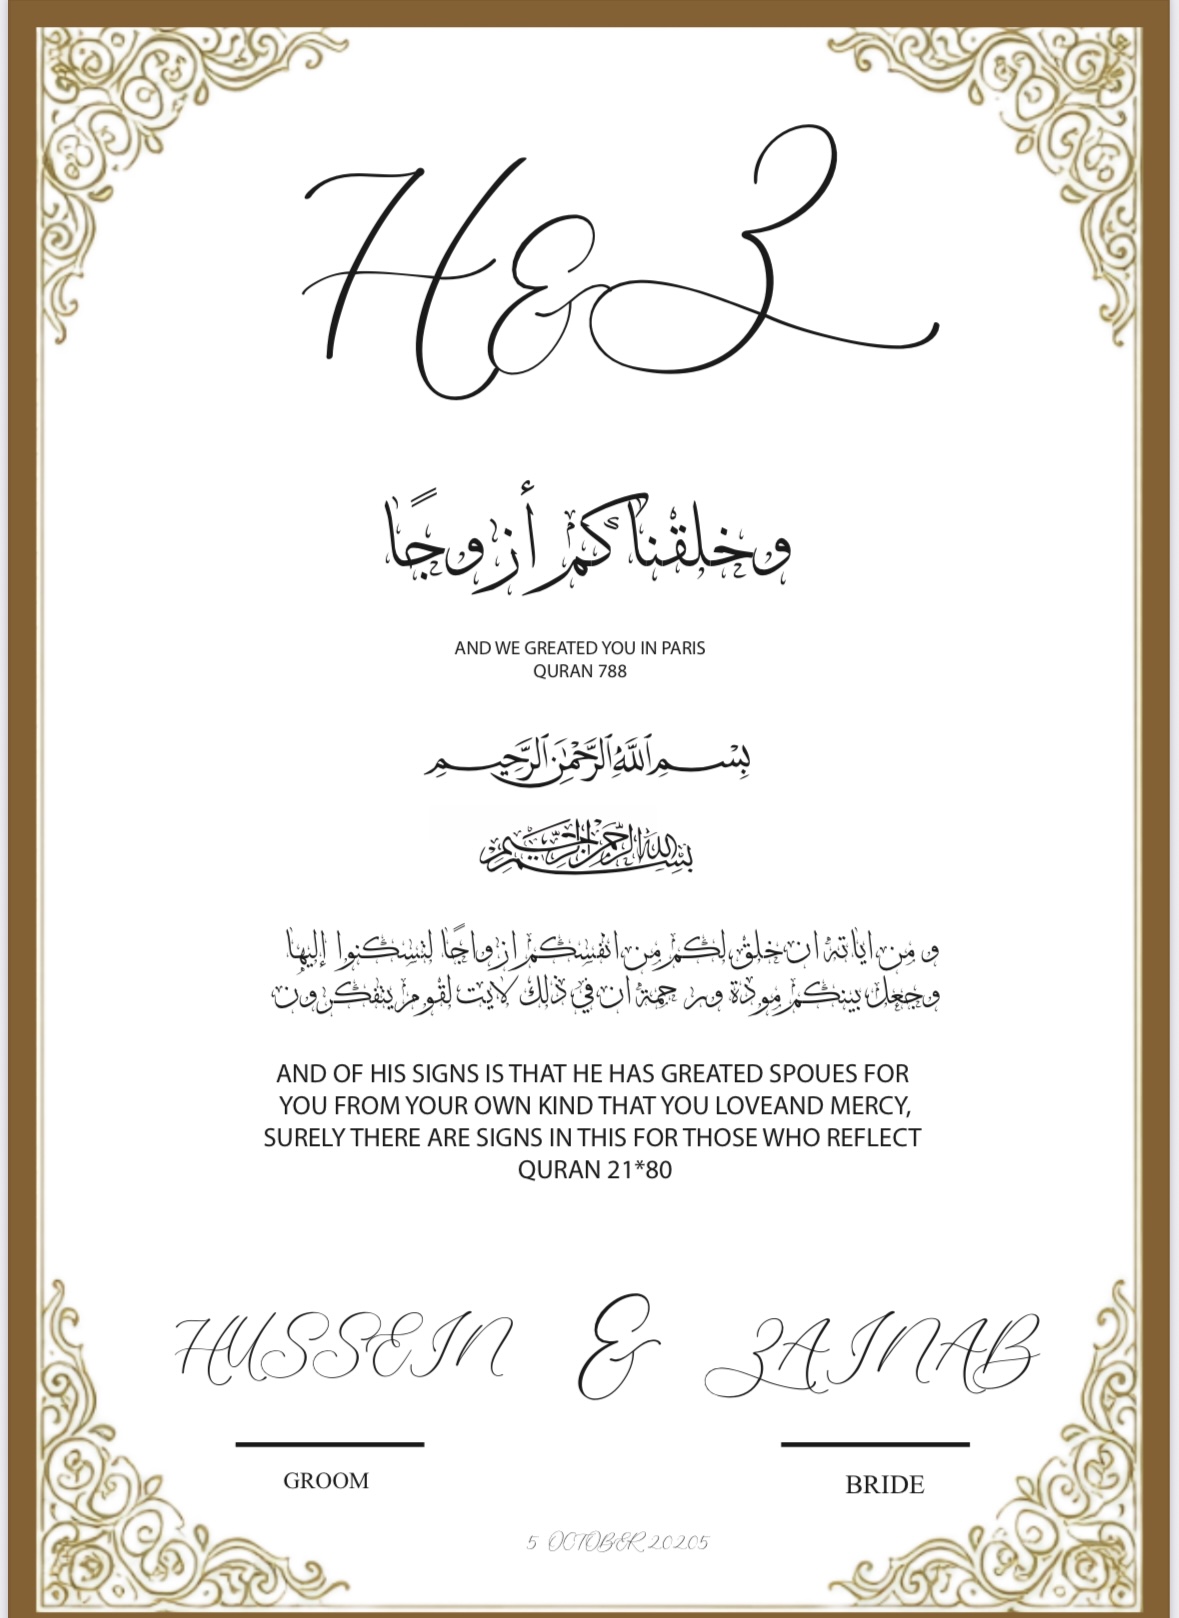 H & Z
وخلقناكم أزوجًا
AND WE GREATED YOU IN PARIS
QURAN 788
بِسْمِ اللَّهِ الرَّحْمَٰنِ الرَّحِيمِ
بسم الله الرحمن الرحيم
و من اياته ان خلق لكم من انفسكم ازواجًا لتسكنوا إليها
وجعل بينكم مودة ورحمة ان في ذلك لايت لقوم يتفكرون
AND OF HIS SIGNS IS THAT HE HAS GREATED SPOUES FOR
YOU FROM YOUR OWN KIND THAT YOU LOVEAND MERCY,
SURELY THERE ARE SIGNS IN THIS FOR THOSE WHO REFLECT
QURAN 21*80
HUSSEIN & ZAINAB
GROOM BRIDE
5 OCTOBER 20205